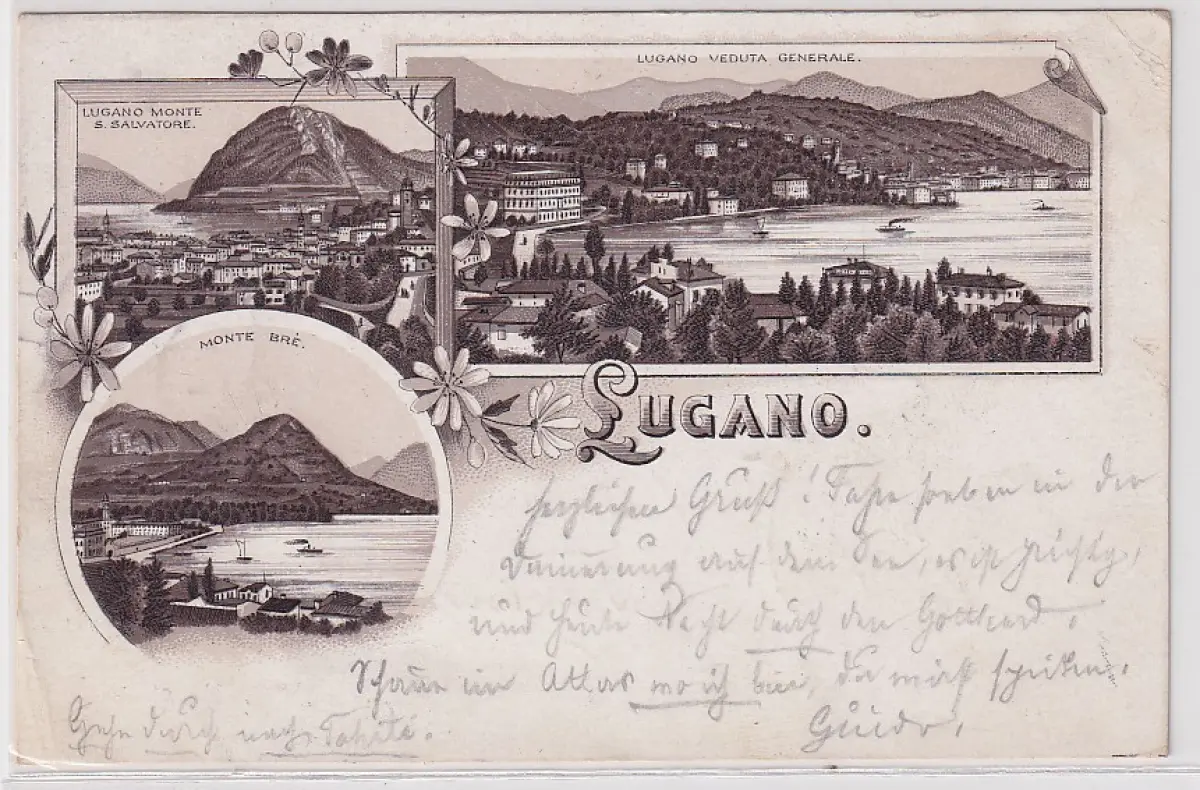 LUGANO VEDUTA GENERALE.
LUGANO MONTE
S. SALVATORE.
MONTE BRÈ.
LUGANO.
herzlichen Gruß! Fahre soeben in der
Dämerung auf dem See, es ist
und heute Nacht durch den Gotthard.
Schaue im Atlas wo ich bin,
Guido.
Gehe durch nach